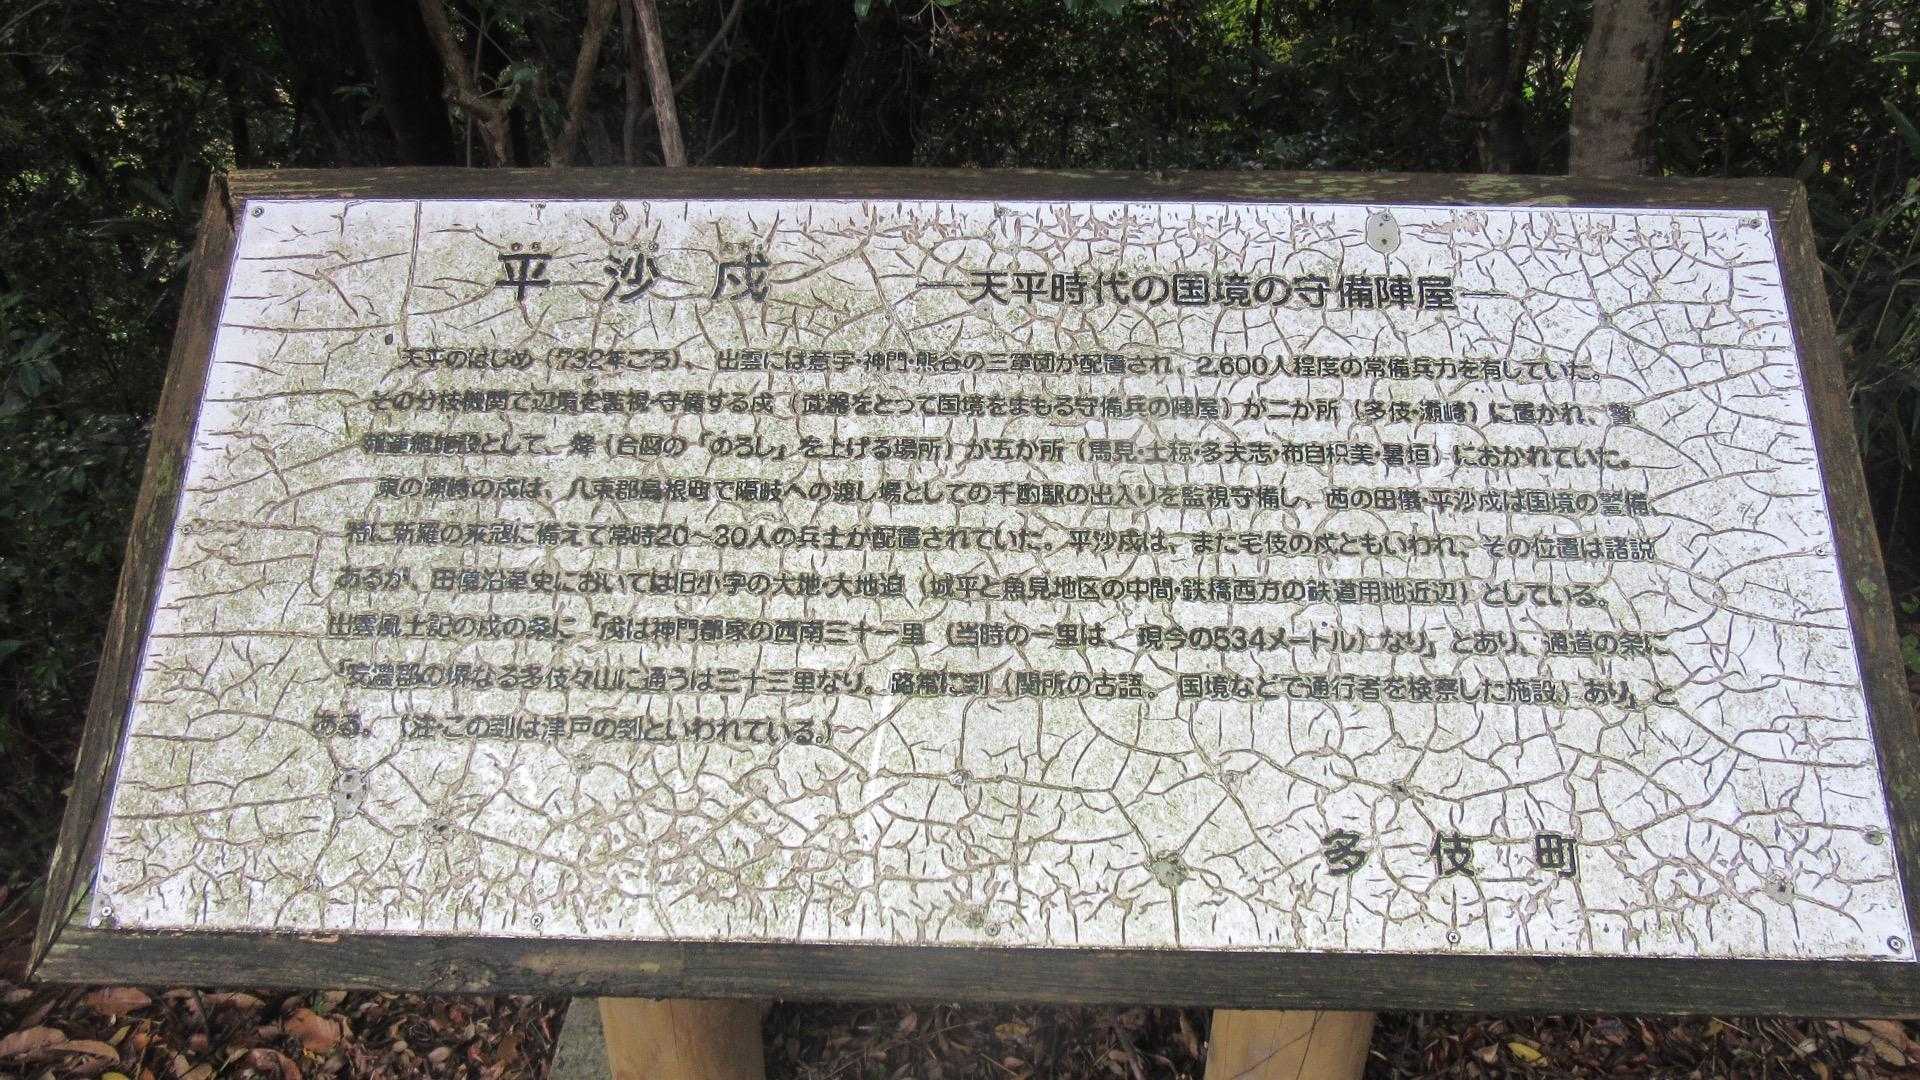 平沙戍 ―天平時代の国境の守備陣屋―
天平のはじめ(732年ごろ)、出雲には意宇・神門・熊谷の三軍団が配置され、2,600人程度の常備兵力を有していた。
その分枝機関で辺境を監視・守備する戍(武器をとって国境をまもる守備兵の陣屋)が二か所(多伎・瀬崎)に置かれ、警
報連絡施設として、烽(合図の「のろし」を上げる場所)が五か所(馬見・土椋・多夫志・布自枳美・暑垣)におかれていた。
東の瀬崎の戍は、八束郡島根町で隠岐への渡し場としての千酌駅の出入りを監視守備し、西の田儀・平沙戍は国境の警備、
特に新羅の来寇に備えて常時20〜30人の兵士が配置されていた。平沙戍は、また宅伎の戍ともいわれ、その位置は諸説
あるが、田儀沿革史においては旧小字の大地・大地迫(城平と魚見地区の中間・鉄橋西方の鉄道用地近辺)としている。
出雲風土記の戍の条に「戍は神門郡家の西南三十一里(当時の一里は、現今の534メートル)なり」とあり、通道の条に
「安濃郡の堺なる多伎々山に通うは三十三里なり。路常に剗(関所の古語。国境などで通行者を検察した施設)あり」と
ある。(注・この剗は津戸の剗といわれている。)
多伎町